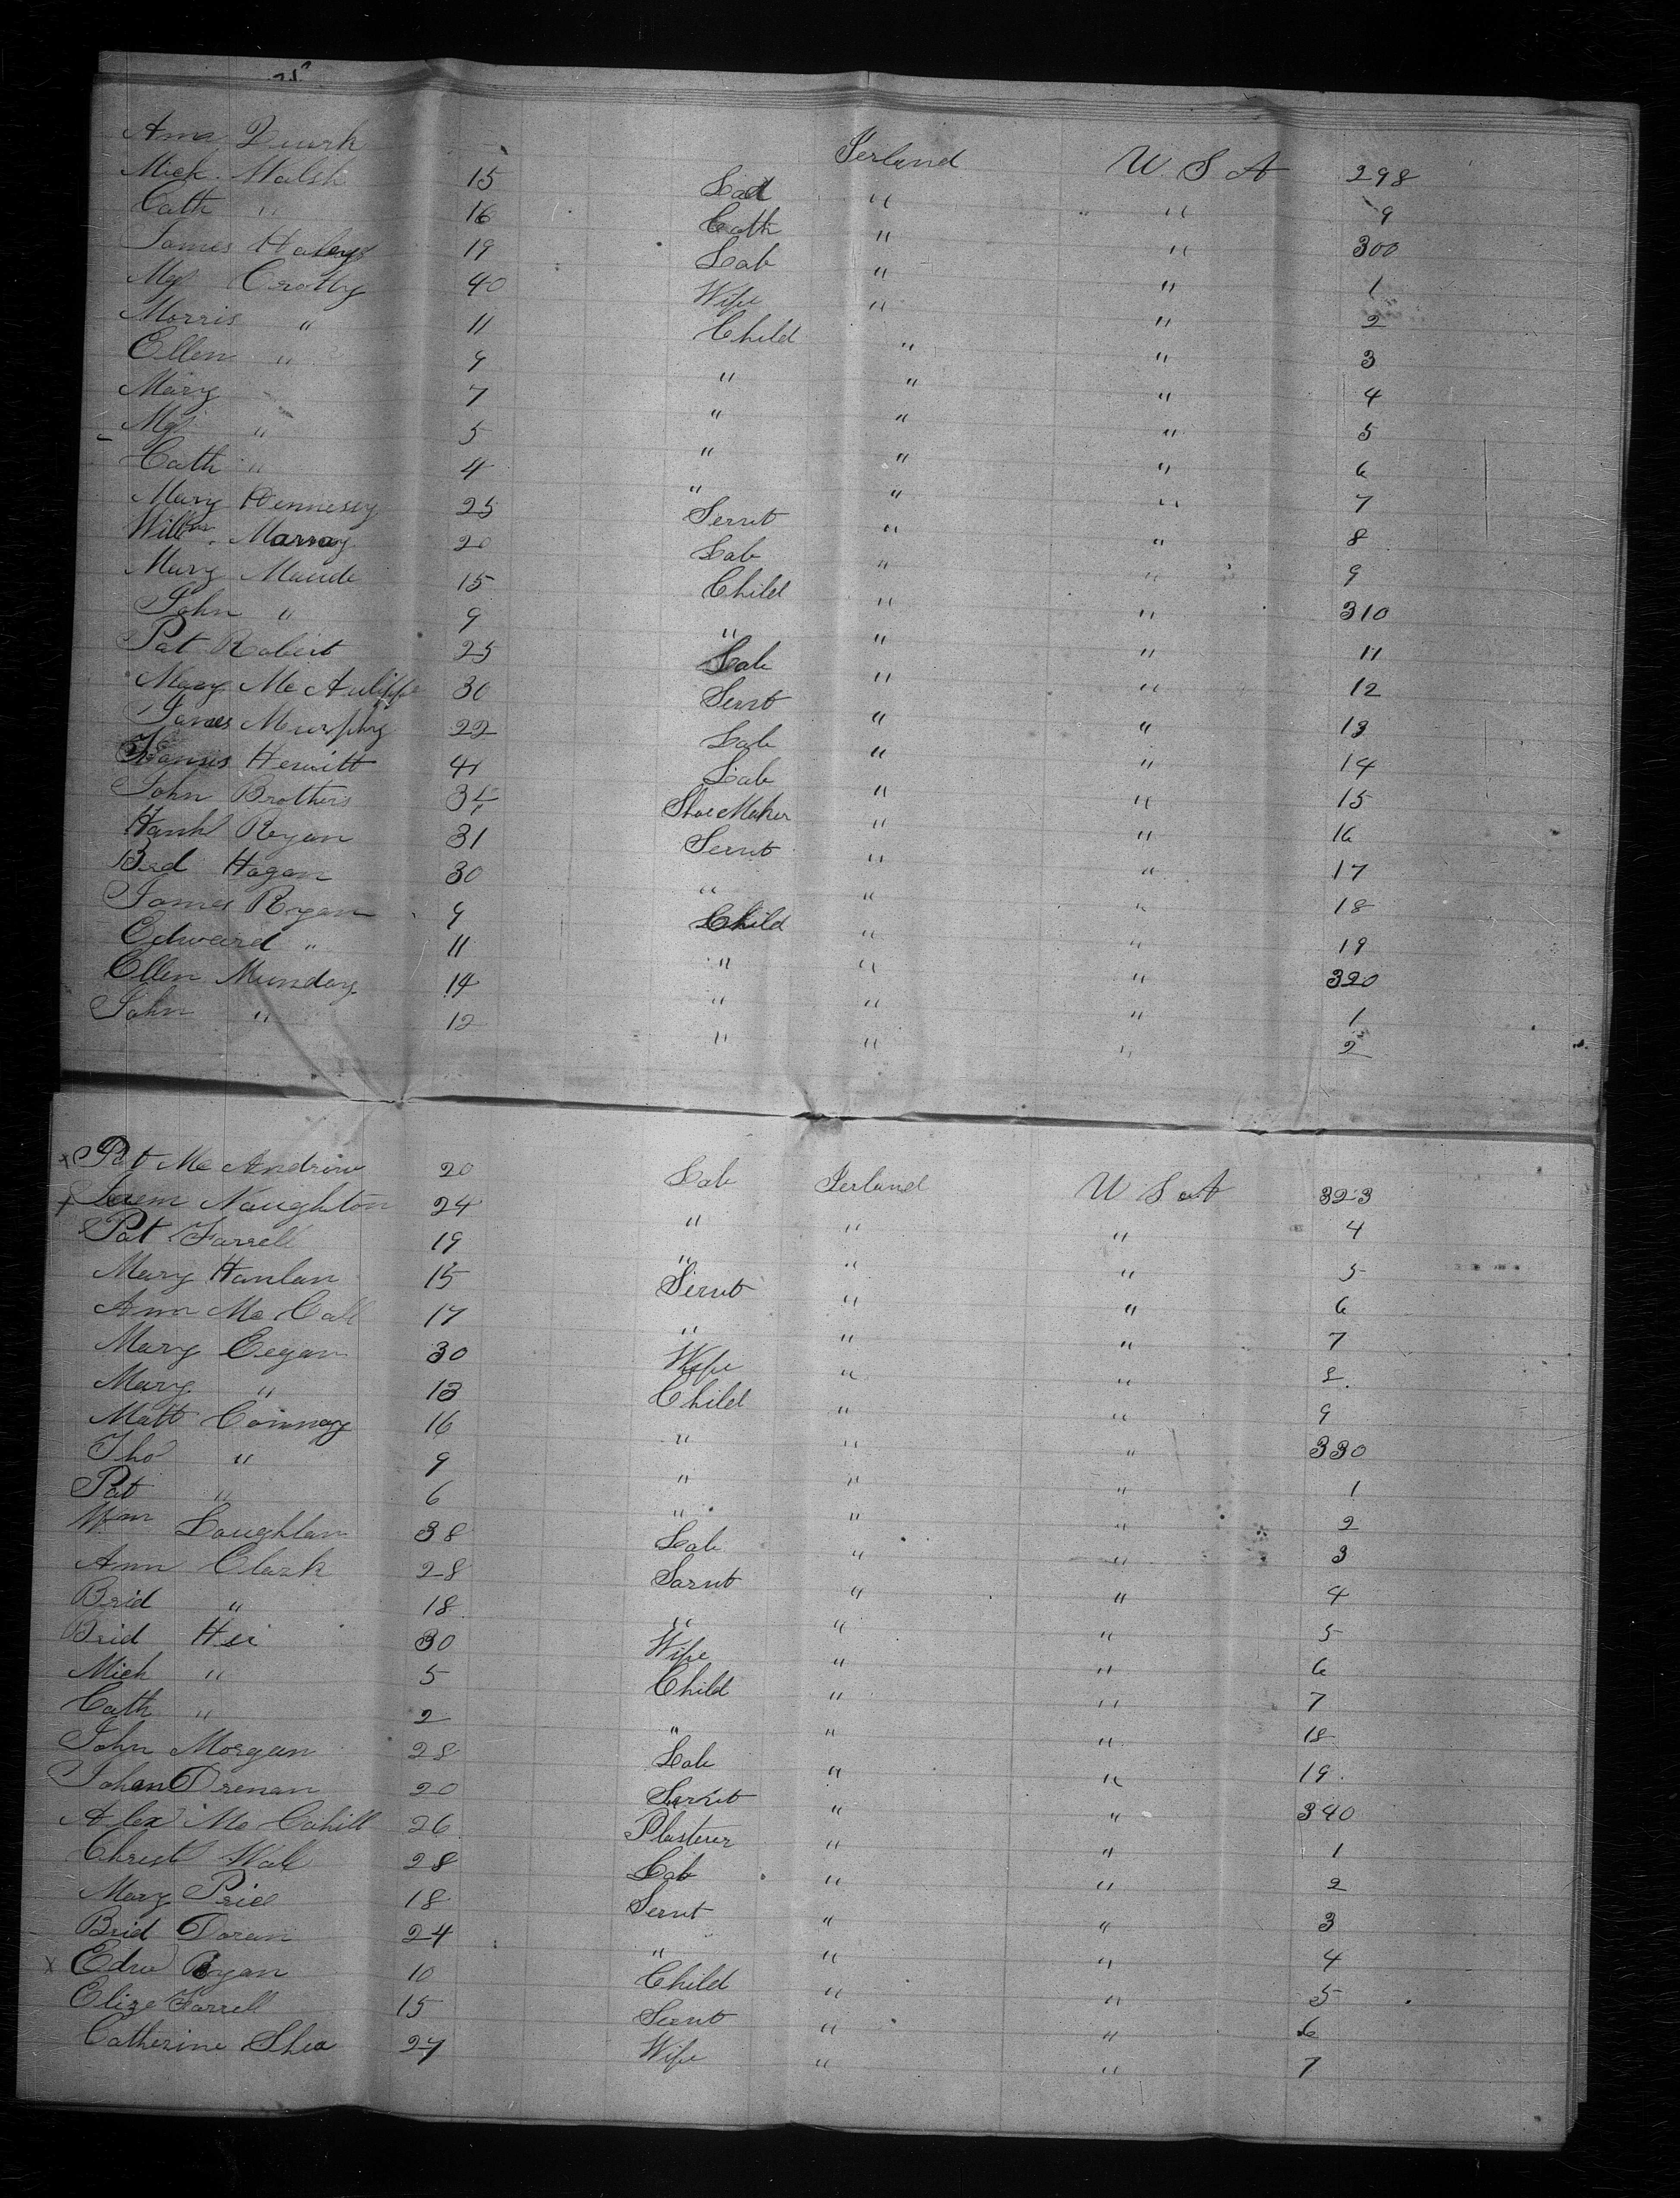 Ann Quirk — Ierland U S A 298
Mich. Walsh 15 Lad " " 9
Cath " 16 Cath " " 300
James Haleys 19 Lab " " 1
Mgt Crotty 40 Wife " " 2
Morris " 11 Child " " 3
Ellen " 9 " " " 4
Mary 7 " " " 5
Mgt " 5 " " " 6
Cath " 4 " " " 7
Mary Hennesey 25 Servt " " 8
Willm. Marray 20 Lab " " 9
Mary Maude 15 Child " " 310
John " 9 " " " 11
Pat Robert 25 Lab " " 12
Mary Mc Auliffe 30 Servt " " 13
James Murphy 22 Lab " " 14
Hewitt 41 Lab " " 15
John Brothers Shoe Maker " " 16
Hanh Ryan 31 Servt " " 17
Brd Hogan 30 " " " 18
James Ryan 9 Child " " 19
Edward " 11 " " " 320
Ellen Munday 14 " " " 1
John " 12 " " " 2
x Pat Mc Andrew 20 Lab Ierland U S A 323
x Naughton 24 " " " 4
Pat Farrell 19 " " " 5
Mary Hanlan 15 Servt " " 6
Ann Mc Call 17 " " " 7
Mary Eegan 30 Wife " " 8
Mary " 13 Child " " 9
Matt Conway 16 " " " 330
Tho " 9 " " " 1
Pat " 6 " " " 2
Wm Loughlan 38 Lab " " 3
Ann Clark 28 Sarvt " " 4
Brid " 18 " " " 5
Brid Hei 30 Wife " " 6
Mich " 5 Child " " 7
Cath " 2 " " " 18
John Morgan 28 Lab " " 19
Johan Drenan 20 Servt " " 340
Alex Mc Cahill 26 Plasterer " " 1
Christ Wall 28 Lab " " 2
Mary Price 18 Servt " " 3
Brid Doran 24 " " " 4
x Edw Ryan 10 Child " " 5
Eliza Farrell 15 Servt " " 6
Catherine Shea 27 Wife " " 7